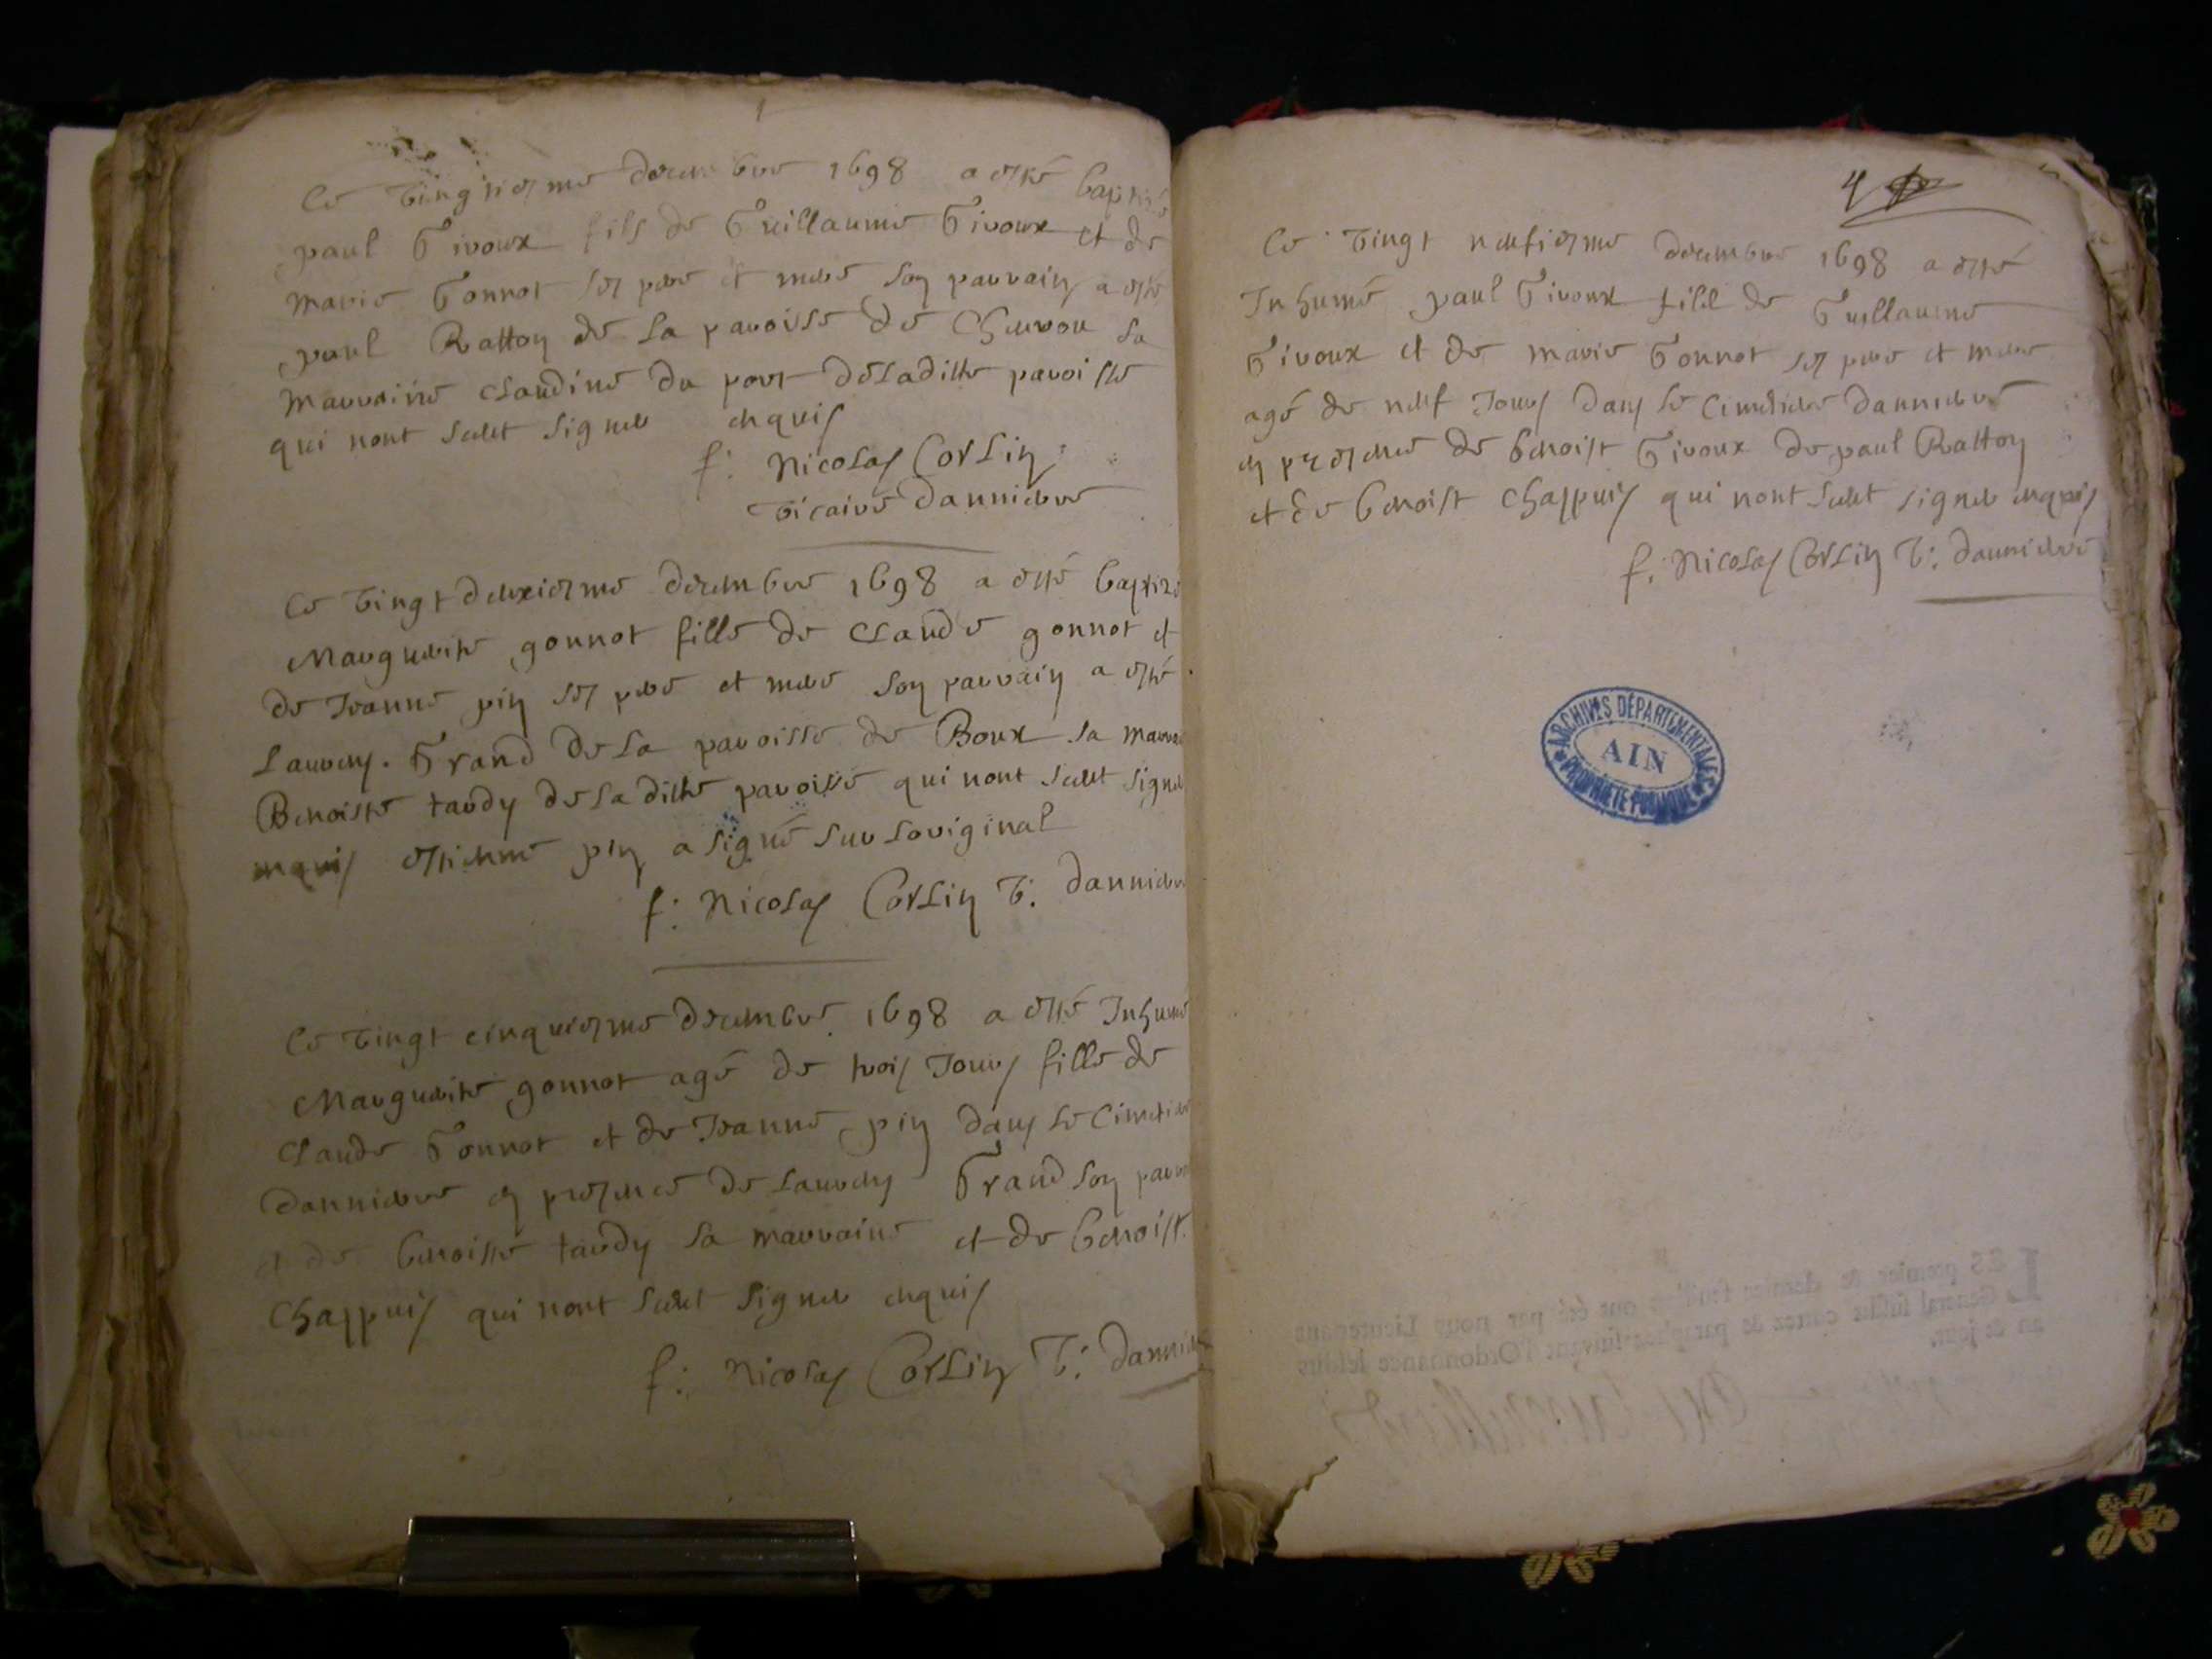 Ce vingtiesme decembre 1698 a esté baptisé
paul Givoux fils de Guillaume Givoux et de
marie Gonnot ses pere et mere son parrain a esté
paul Ratton de la paroisse de
marraine claudine du port de laditte paroisse
qui nont sceut signer enquis
f: Nicolas Corlin
vicaire dannieres
Ce vingt deuxiesme decembre 1698 a esté baptizé
Marguerite gonnot fille de claude gonnot et
de Jeanne pin ses pere et mere son parrain a esté
Laurens Grand de la paroisse de Boux sa
Benoiste tardy de la ditte paroisse qui nont sceut signer
enquis estienne pin a signé sur loriginal
f: Nicolas Corlin V: dannieres
Ce vingt cinquiesme decembre 1698 a esté Inhumé
Marguerite gonnot agé de trois Jours fille de
claude Gonnot et de Jeanne pin dans le cimetiere
dannieres en presence de laurens Grand son
et de benoiste tardy sa marraine et de benoist
Chappuis qui nont sceut signer enquis
f: Nicolas Corlin V: dannieres
4
Ce vingt neufiesme decembre 1698 a esté
Inhumé paul Givoux fils de Guillaume
Givoux et de marie Gonnot ses pere et mere
agé de neuf Jours dans le cimetiere dannieres
en presence de benoist Givoux de paul Ratton
et de benoist Chappuis qui nont sceut signer enquis
f: Nicolas Corlin V: dannieres
ARCHIVES DÉPARTEMENTALES
AIN
PROPRIÉTÉ PUBLIQUE
LES premier & dernier feuillet ont été par nous Lieutenant
General susdit cottez & paraphez suivant l'Ordonnance
an & jour.